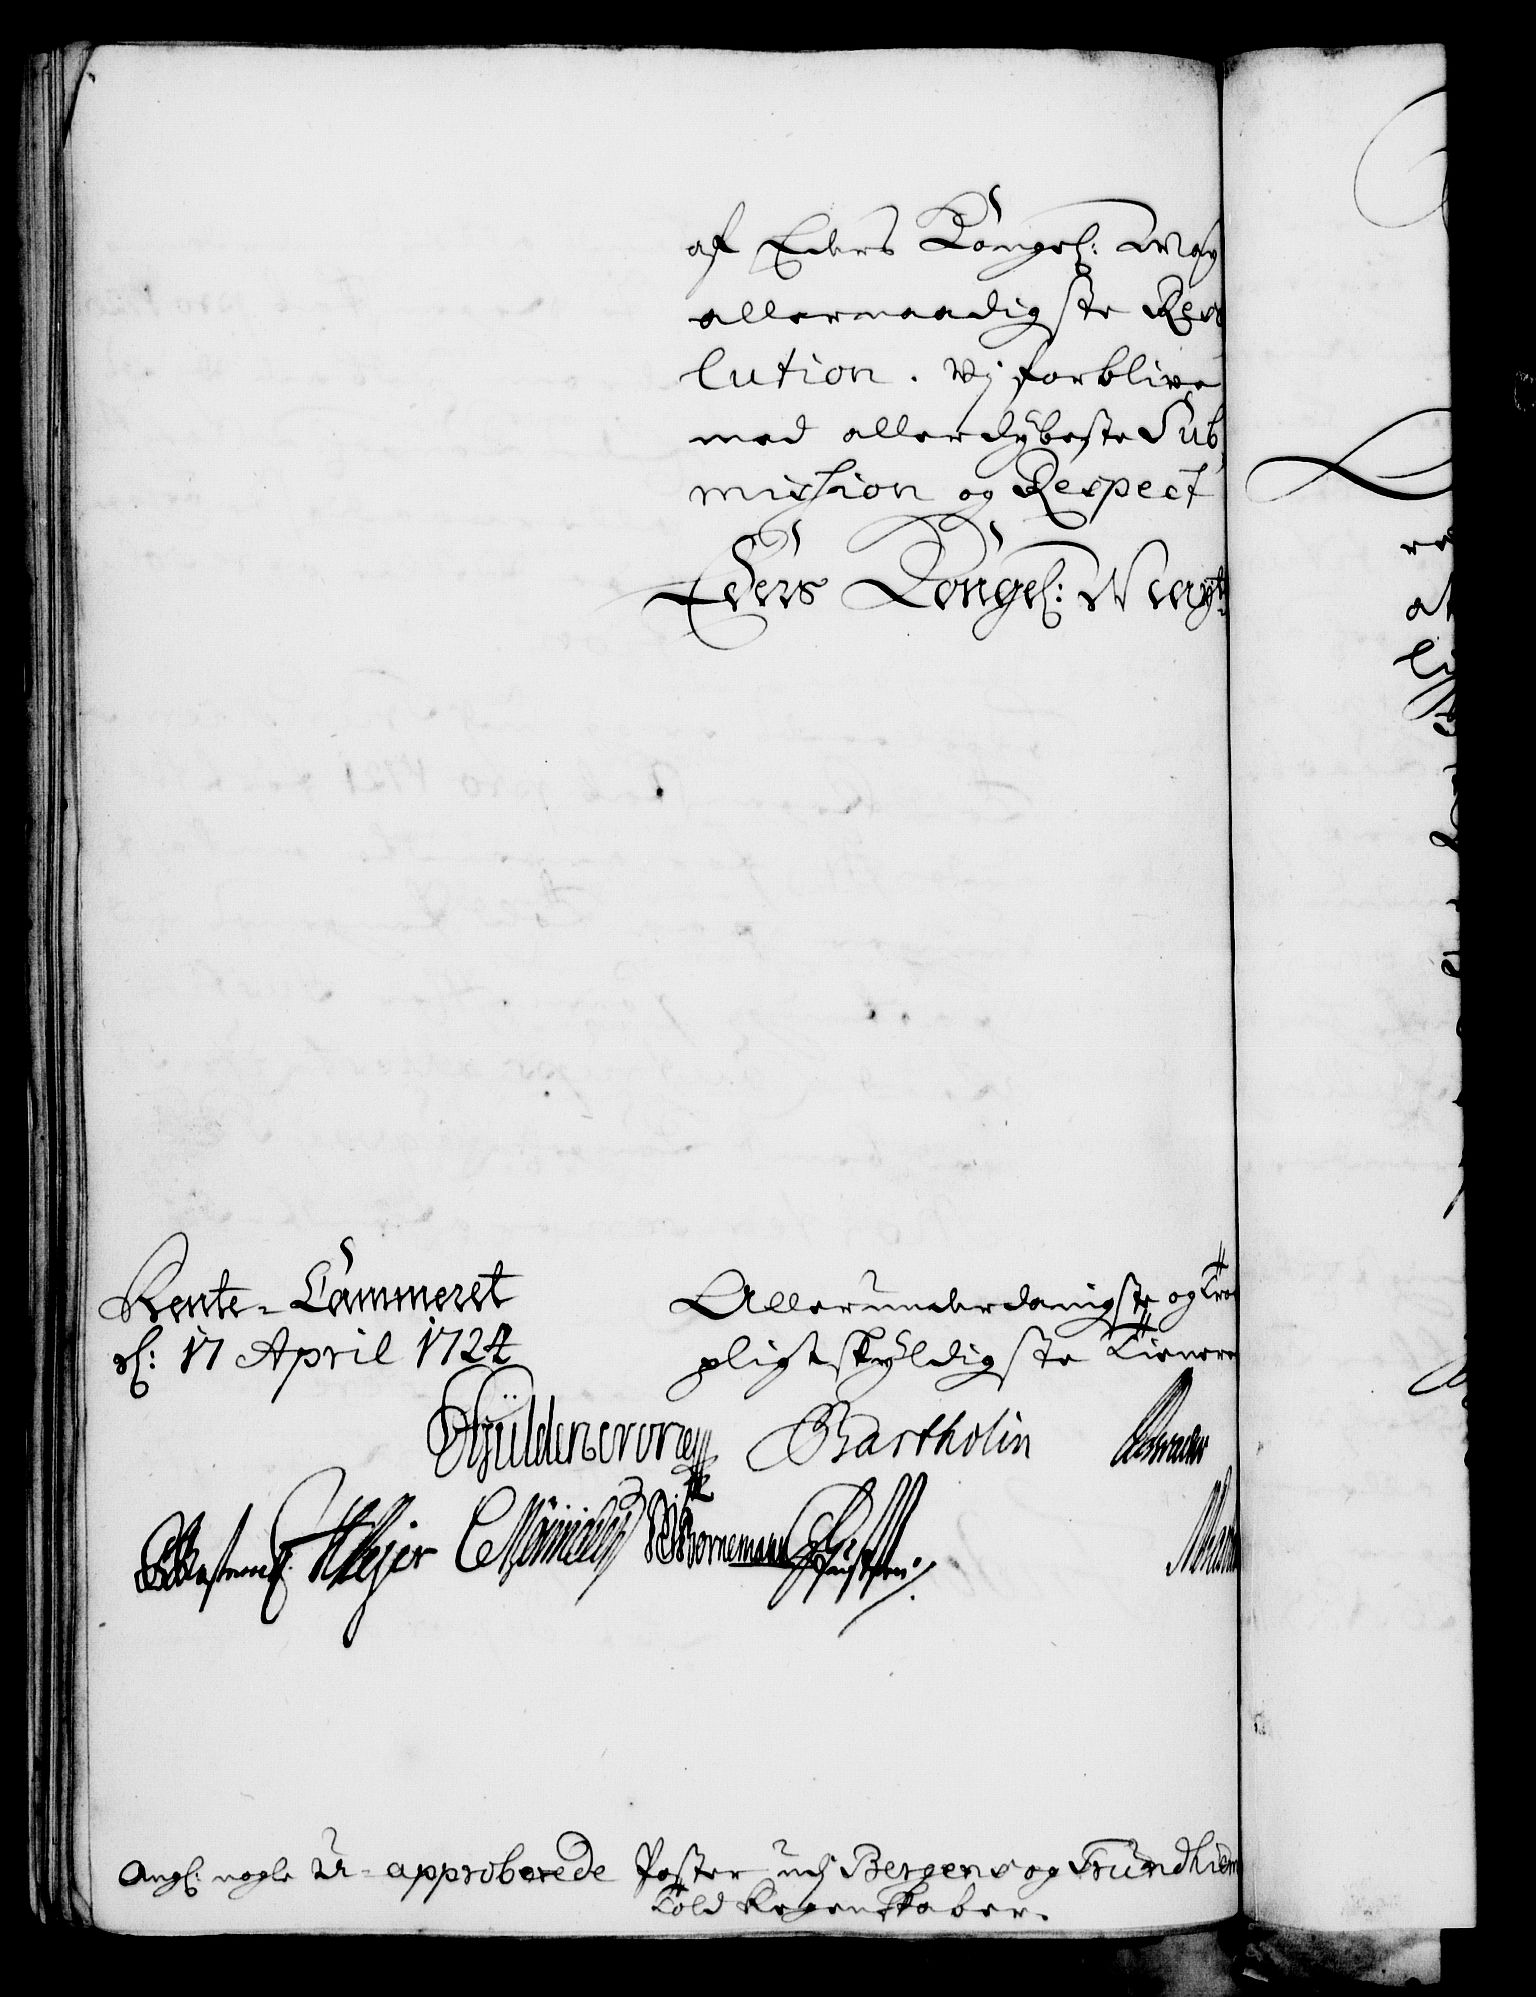 af Eders Kongel: May
allernaadigste Reso
lution. Vj forblive
med allerdybeste Sub,
mission og Respect
Eders Kongel: Mayt:
Rente-Cammeret
d: 17 April 1724
Allerunderdanigste og Tro
pligtskyldigste Tienere
Güldencrone Bartholin
Meyer Bornemann
Angl: nogle U-approberede Poster udj Bergens og Trundhiem
Told Regenskaber.